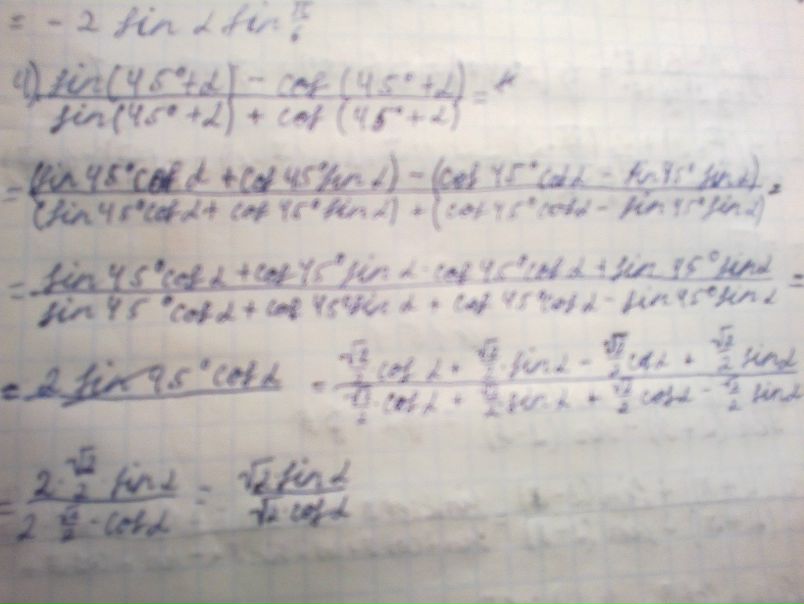 = - 2 sin α sin π/6
4) (sin(45°+α) - cos(45°+α)) / (sin(45°+α) + cos(45°+α)) =
= ((sin45°cosα + cos45°sinα) - (cos45°cosα - sin45°sinα)) / ((sin45°cosα + cos45°sinα) + (cos45°cosα - sin45°sinα)) =
= (sin45°cosα + cos45°sinα - cos45°cosα + sin45°sinα) / (sin45°cosα + cos45°sinα + cos45°cosα - sin45°sinα) =
= 2 sin45°cosα = (√2/2 cosα + √2/2 · sinα - √2/2 cosα + √2/2 sinα) / (√2/2 · cosα + √2/2 sinα + √2/2 cosα - √2/2 sinα)
= (2 · √2/2 · sinα) / (2 √2/2 · cosα) = (√2 sinα) / (√2 · cosα)